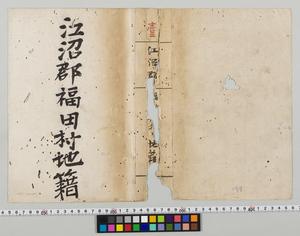 江沼郡福田村地籍
壹
江沼郡
地籍